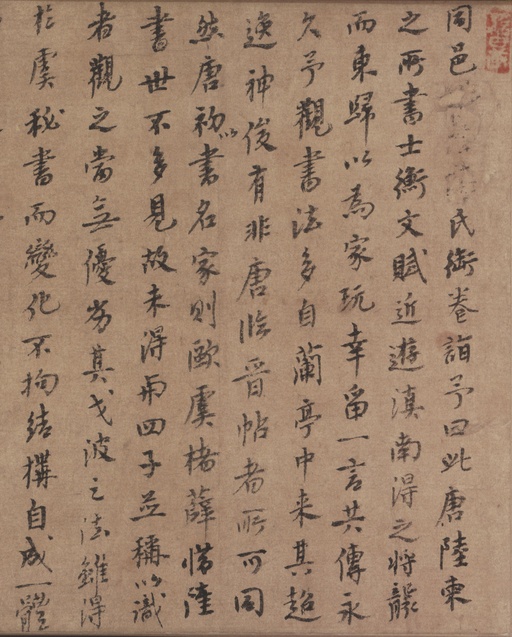 同邑氏銜卷詣予曰此唐陸柬
之所書士衡文賦近遊滇南得之將襲
而東歸以為家玩幸留一言共傳永
久予觀書法多自蘭亭中来其超
逸神俊有非唐臨晉帖者所可同
然唐初以書名家則歐虞褚薛惜陸
書世不多見故未得與四子並稱以識
者觀之當無優劣其戈波之法雖得
於虞秘書而變化不拘結構自成一體